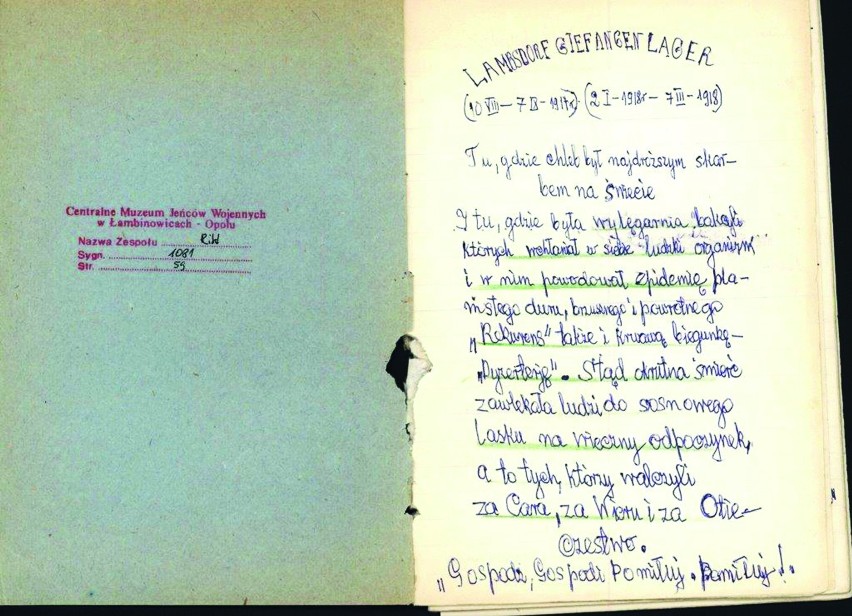 Centralne Muzeum Jeńców Wojennych
w Łambinowicach - Opolu
Nazwa Zespołu RiW
Sygn. 1081
Str. 59
LAMBSDORF GIEFANGEN LAGER
(10 VIII — 7 IX - 1917r) (2 I - 1918r — 7 III - 1918)
Tu, gdzie chleb był najdroższym skar-
bem na świecie
I tu, gdzie była wylęgarnia bakcyli
których wchłaniał w siebie ludzki organizm
i w nim powodował epidemię pla-
mistego duru, brzusznego i powrotnego
„Rekurens" także i krwawą biegunkę-
„Dyzenterję". Stąd okrutna śmierć
zawlekała ludzi do sosnowego
lasku na wieczny odpoczynek,
a to tych, którzy walczyli
za Cara, za Wieru i za Otie-
czestwo.
„Gospodi, Gospodi Pomiłuj. Pomiłuj!.